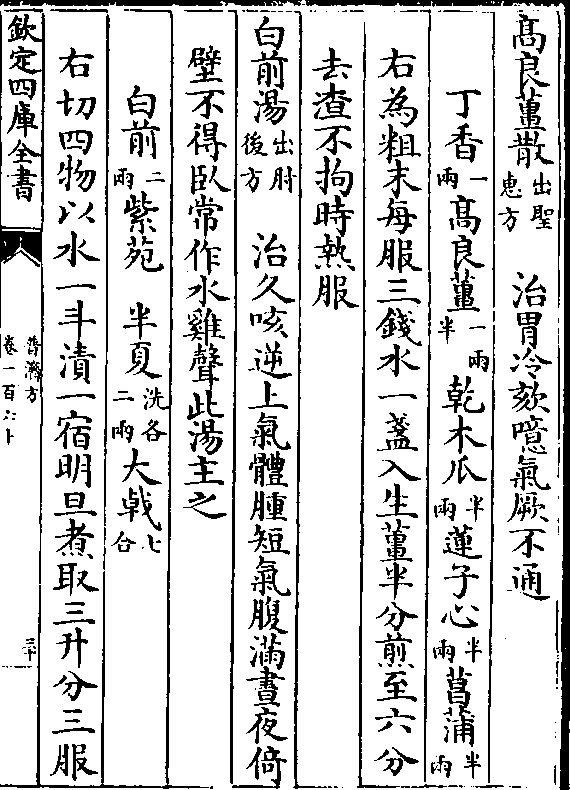 髙良薑散出聖惠方　治胃冷欬噫氣厥不通
丁香一兩髙良薑一兩半乾木瓜半兩蓮子心半兩菖蒲半兩
右為粗末每服三錢水一盞入生薑半分煎至六分
去渣不拘時熱服
白前湯出肘後方　治久咳逆上氣體腫短氣腹滿晝夜倚
壁不得臥常作水雞聲此湯主之
白前二兩紫菀　半夏洗各二兩大戟七合
右切四物以水一斗漬一宿明旦煮取三升分三服
欽定四庫全書
普濟方
卷一百六十
三十